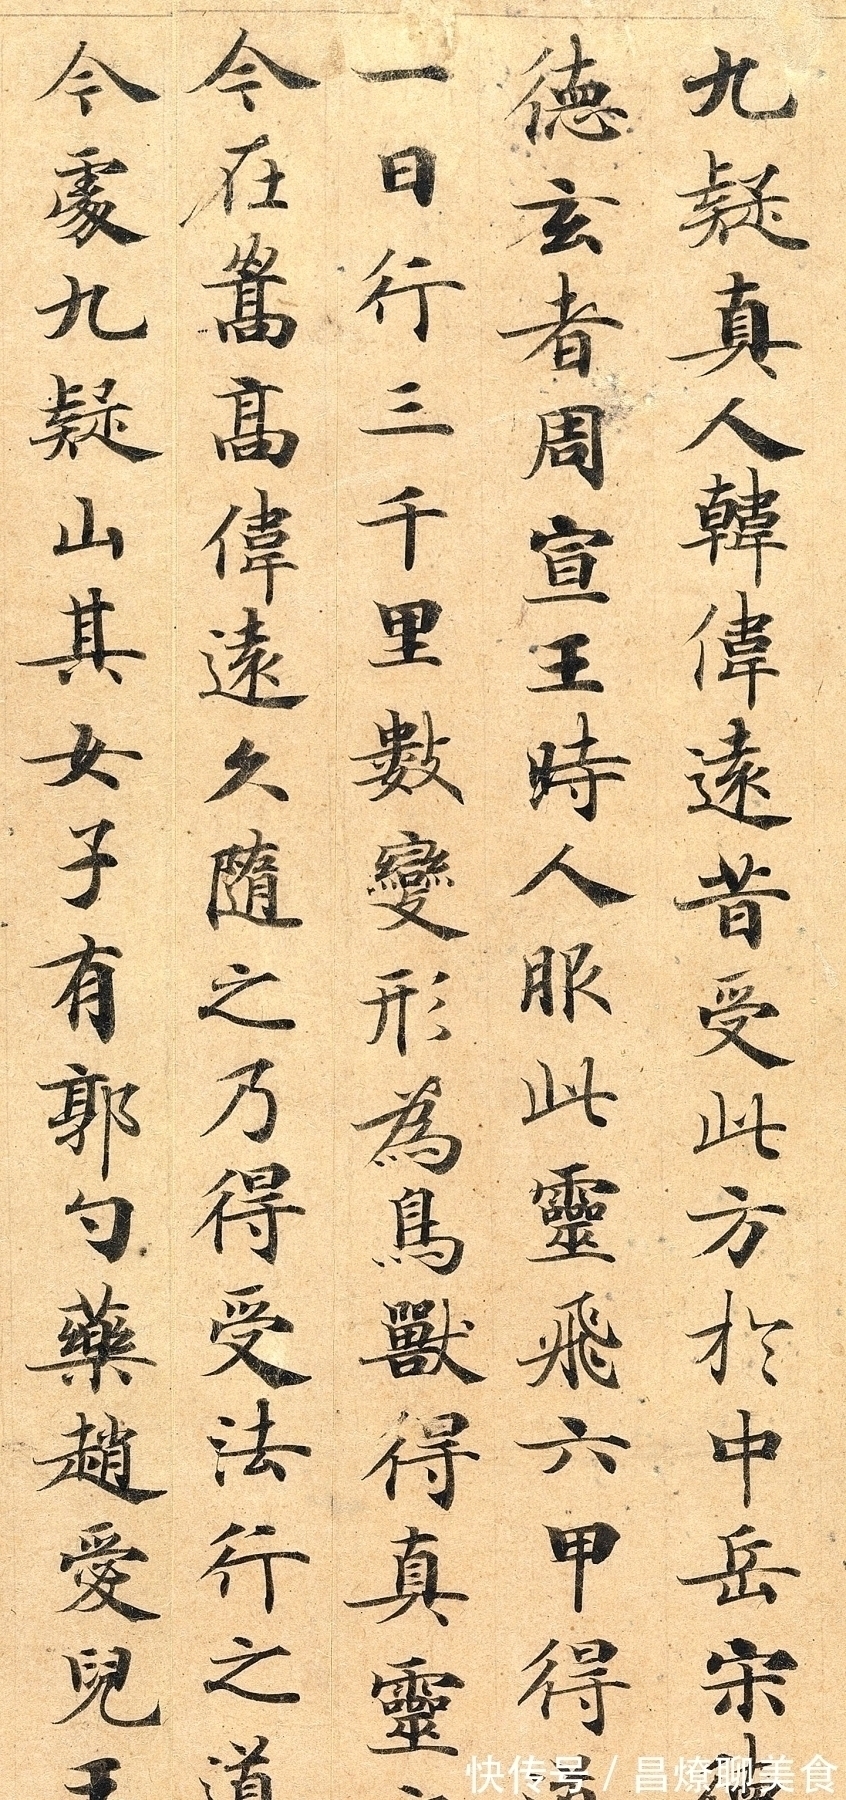 九疑真人韓偉遠昔受此方於中岳宋
德玄者周宣王時人服此靈飛六甲得
一日行三千里數變形為鳥獸得真靈
今在嵩高偉遠久隨之乃得受法行之道
今處九疑山其女子有郭勺藥趙愛兒王
快传号/昌燎聊美食